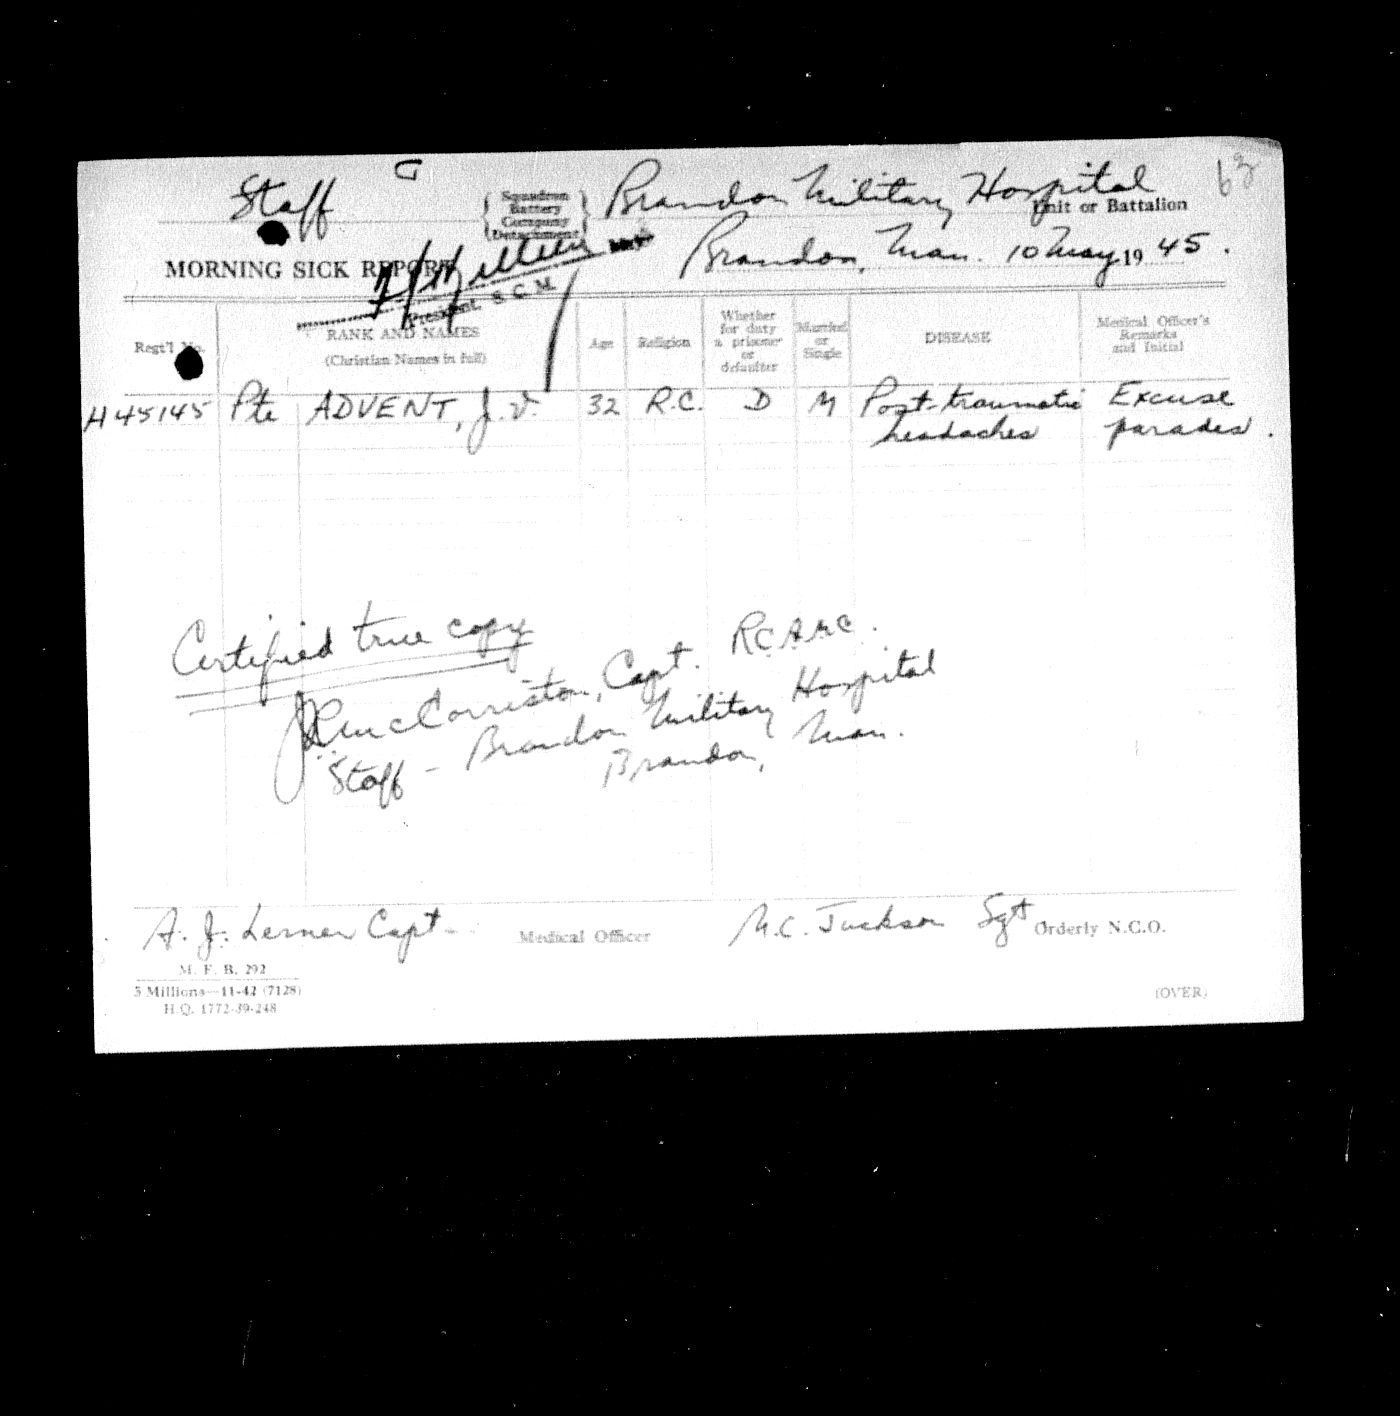 Staff
Squadron
Battery
Company
Detachment
Brandon Military Hospital
Unit or Battalion
63
MORNING SICK REPORT
Brandon, Man. 10 May 1945.
President S.C.M.
Regt'l No.
RANK AND NAMES
(Christian Names in full)
Age
Religion
Whether
for duty
a prisoner
or
defaulter
Married
or
Single
DISEASE
Medical Officer's
Remarks
and Initial
H45145 Pte ADVENT, J.V. 32 R.C. D M Post-traumatic Excuse
headaches parades.
Certified true copy
McCorriston, Capt. RCAMC.
Staff - Brandon Military Hospital
Brandon, Man.
A. J. Lerner Capt Medical Officer M.C. Jackson Sgt Orderly N.C.O.
M. F. B. 292
5 Millions—11-42 (7128)
H.Q. 1772-39-248
(OVER)